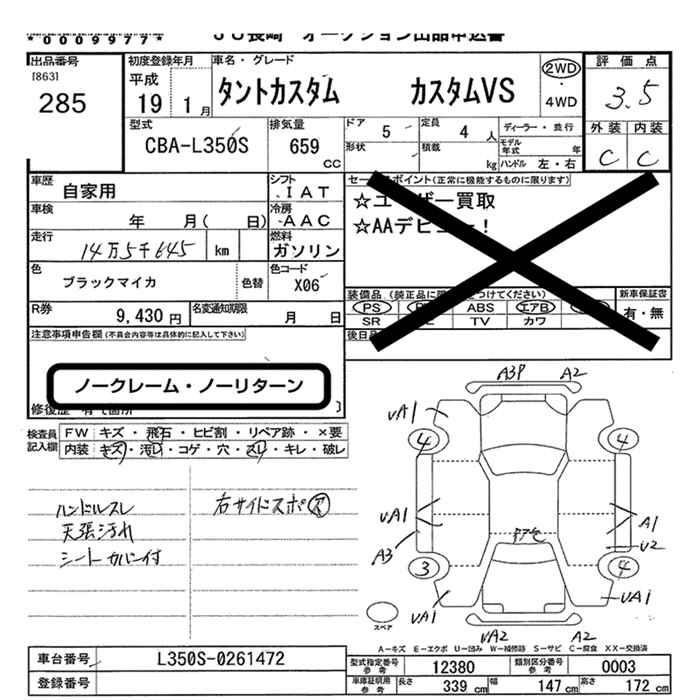 *0009977*
JU長崎 オークション出品申込書
出品番号
[863]
285
初度登録年月
平成
19 1月
車名・グレード
タントカスタム カスタムVS
2WD
・
4WD
評価点
3.5
外装 内装
C C
型式
CBA-L350S
排気量
659
CC
ドア 5
定員 4 人
形状
積載 kg
ディーラー・並行
モデル年式 年
ハンドル 左・右
車歴
自家用
シフト
IAT
車検
年 月( 日)
冷房
AAC
走行
14万5千645 km
燃料
ガソリン
色
ブラックマイカ
色替
色コード
X06
R券
9,430 円
名変通知期限
月 日
セールスポイント(正常に機能するものに限ります)
☆ユーザー買取
☆AAデビュー!
装備品 (純正品に つけてください)
PS ABS エアB
SR TV カワ
新車保証書
有・無
後日
注意事項申告欄(不具合内容等は具体的に記入して下さい)
ノークレーム・ノーリターン
修復歴 有
検査員
記入欄
FW キズ・飛石・ヒビ割・リペア跡・×要
内装 キズ・汚レ・コゲ・穴・スレ・キレ・破レ
ハンドルスレ
天張汚れ
シートカバー付
右サイドスポ ス
A3P A2
UA1
4 4
UA1 A1
A3 U2
3 4
UA1 UA1
UA2 A2
スペア
A-キズ E-エクボ U-凹み W-補修跡 S-サビ C-腐食 XX-交換済
車台番号 L350S-0261472
登録番号
型式指定番号
参考
12380
類別区分番号
参考
0003
車庫証明用
参考
長さ 339 cm 幅 147 cm 高さ 172 cm